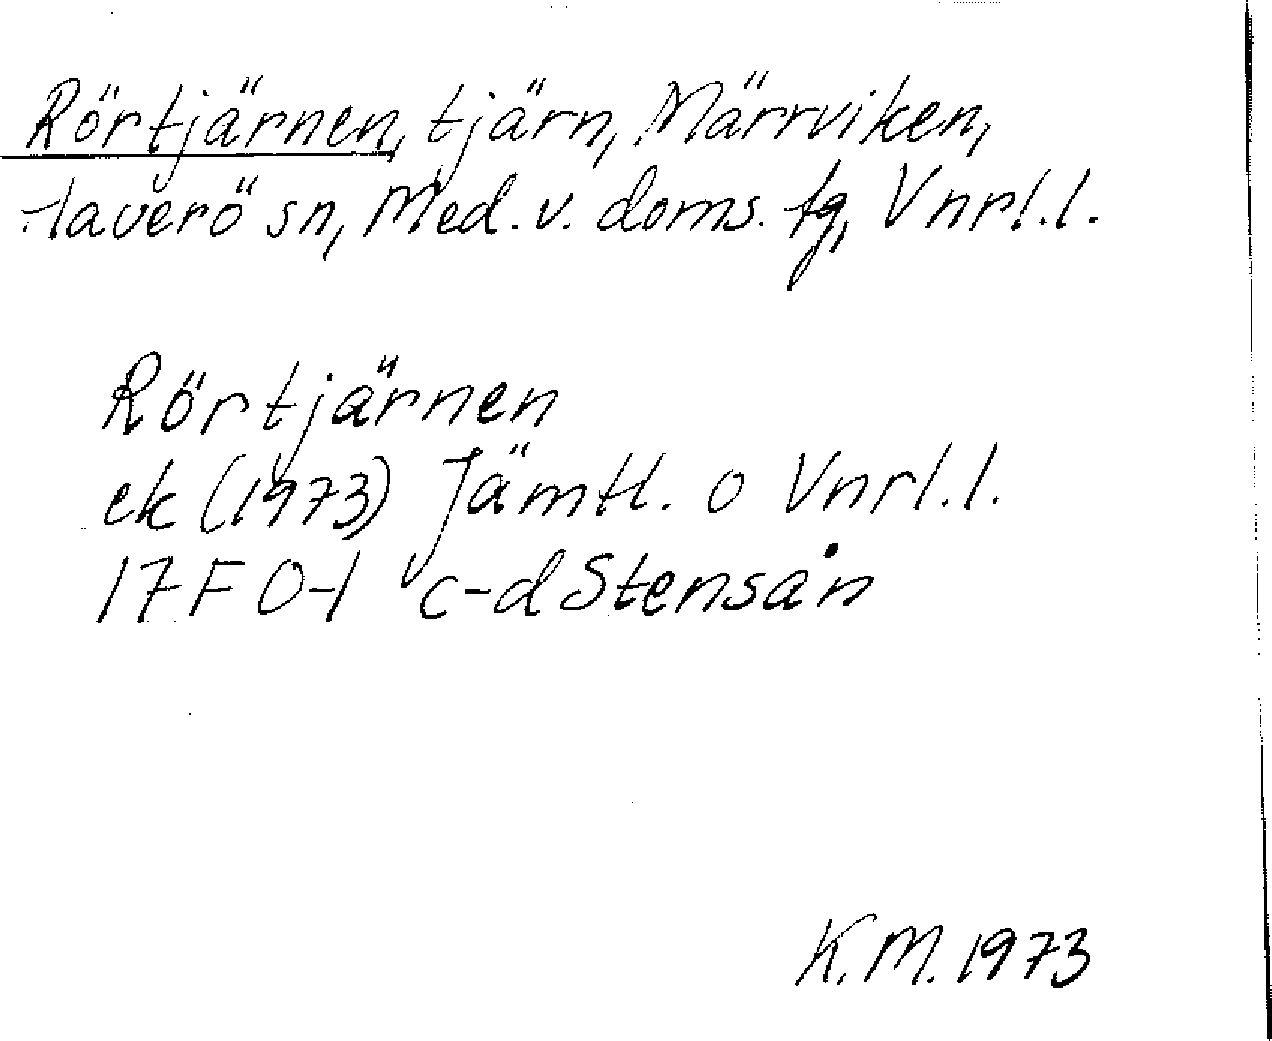 Rörtjärnen, tjärn, Märrviken,
Haverö sn, Med. v. doms. tg, Vnrl. l.
Rörtjärnen
ek (1973) Jämtl. o Vnrl. l.
17F 0-1 c-d Stensån
K. M. 1973